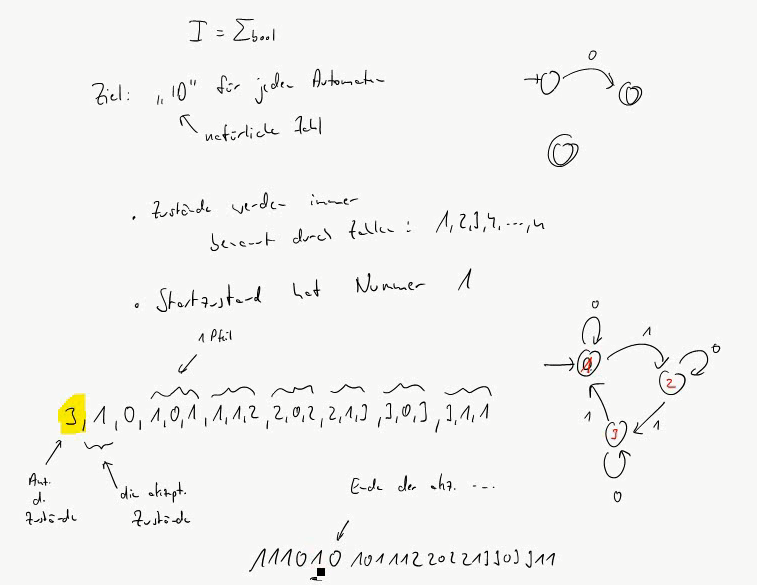 I = Σbool
0
Ziel: „ID“ für jeden Automaten
natürliche Zahl
• Zustände werden immer
benannt durch Zahlen: 1,2,3,4,...,n
• Startzustand hat Nummer 1
1 Pfeil
0
1
0
2
3, 1, 0, 1,0,1, 1,1,2, 2,0,2, 2,1,3, 3,0,3, 3,1,1
1
3
1
Anz.
d.
Zustände
die akzept.
Zustände
0
Ende der akz. ...
111010 101112202213303311